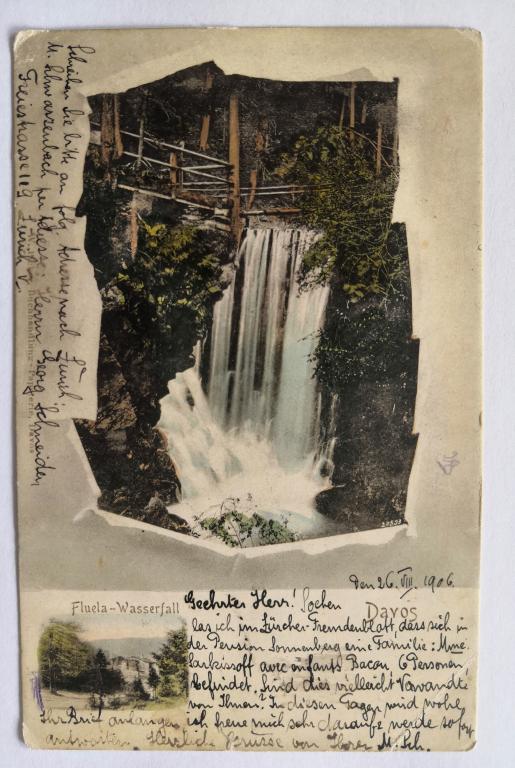 Schreiben Sie bitte an folg. Adresse nach Zürich:
M. Schwarzenbach per Adresse: Herrn Georg Schneider,
Freiestrasse 119 Zürich V.
23553
Fluela-Wasserfall
Davos
Den 26. VIII. 1906.
Geehrter Herr! Soeben
las ich im Zürcher-Fremdenblatt, dass sich in
der Pension Sonnenberg eine Familie: Mme
avec enfants Bacau 6 Personen
befindet. Sind dies vielleicht Verwandte
von Ihnen? In diesen Tagen wird wohl
Ihr Brief anlangen
ich freue mich sehr darauf u. werde sofort
antworten. Herzliche Grüsse von Ihrer M. Sch.